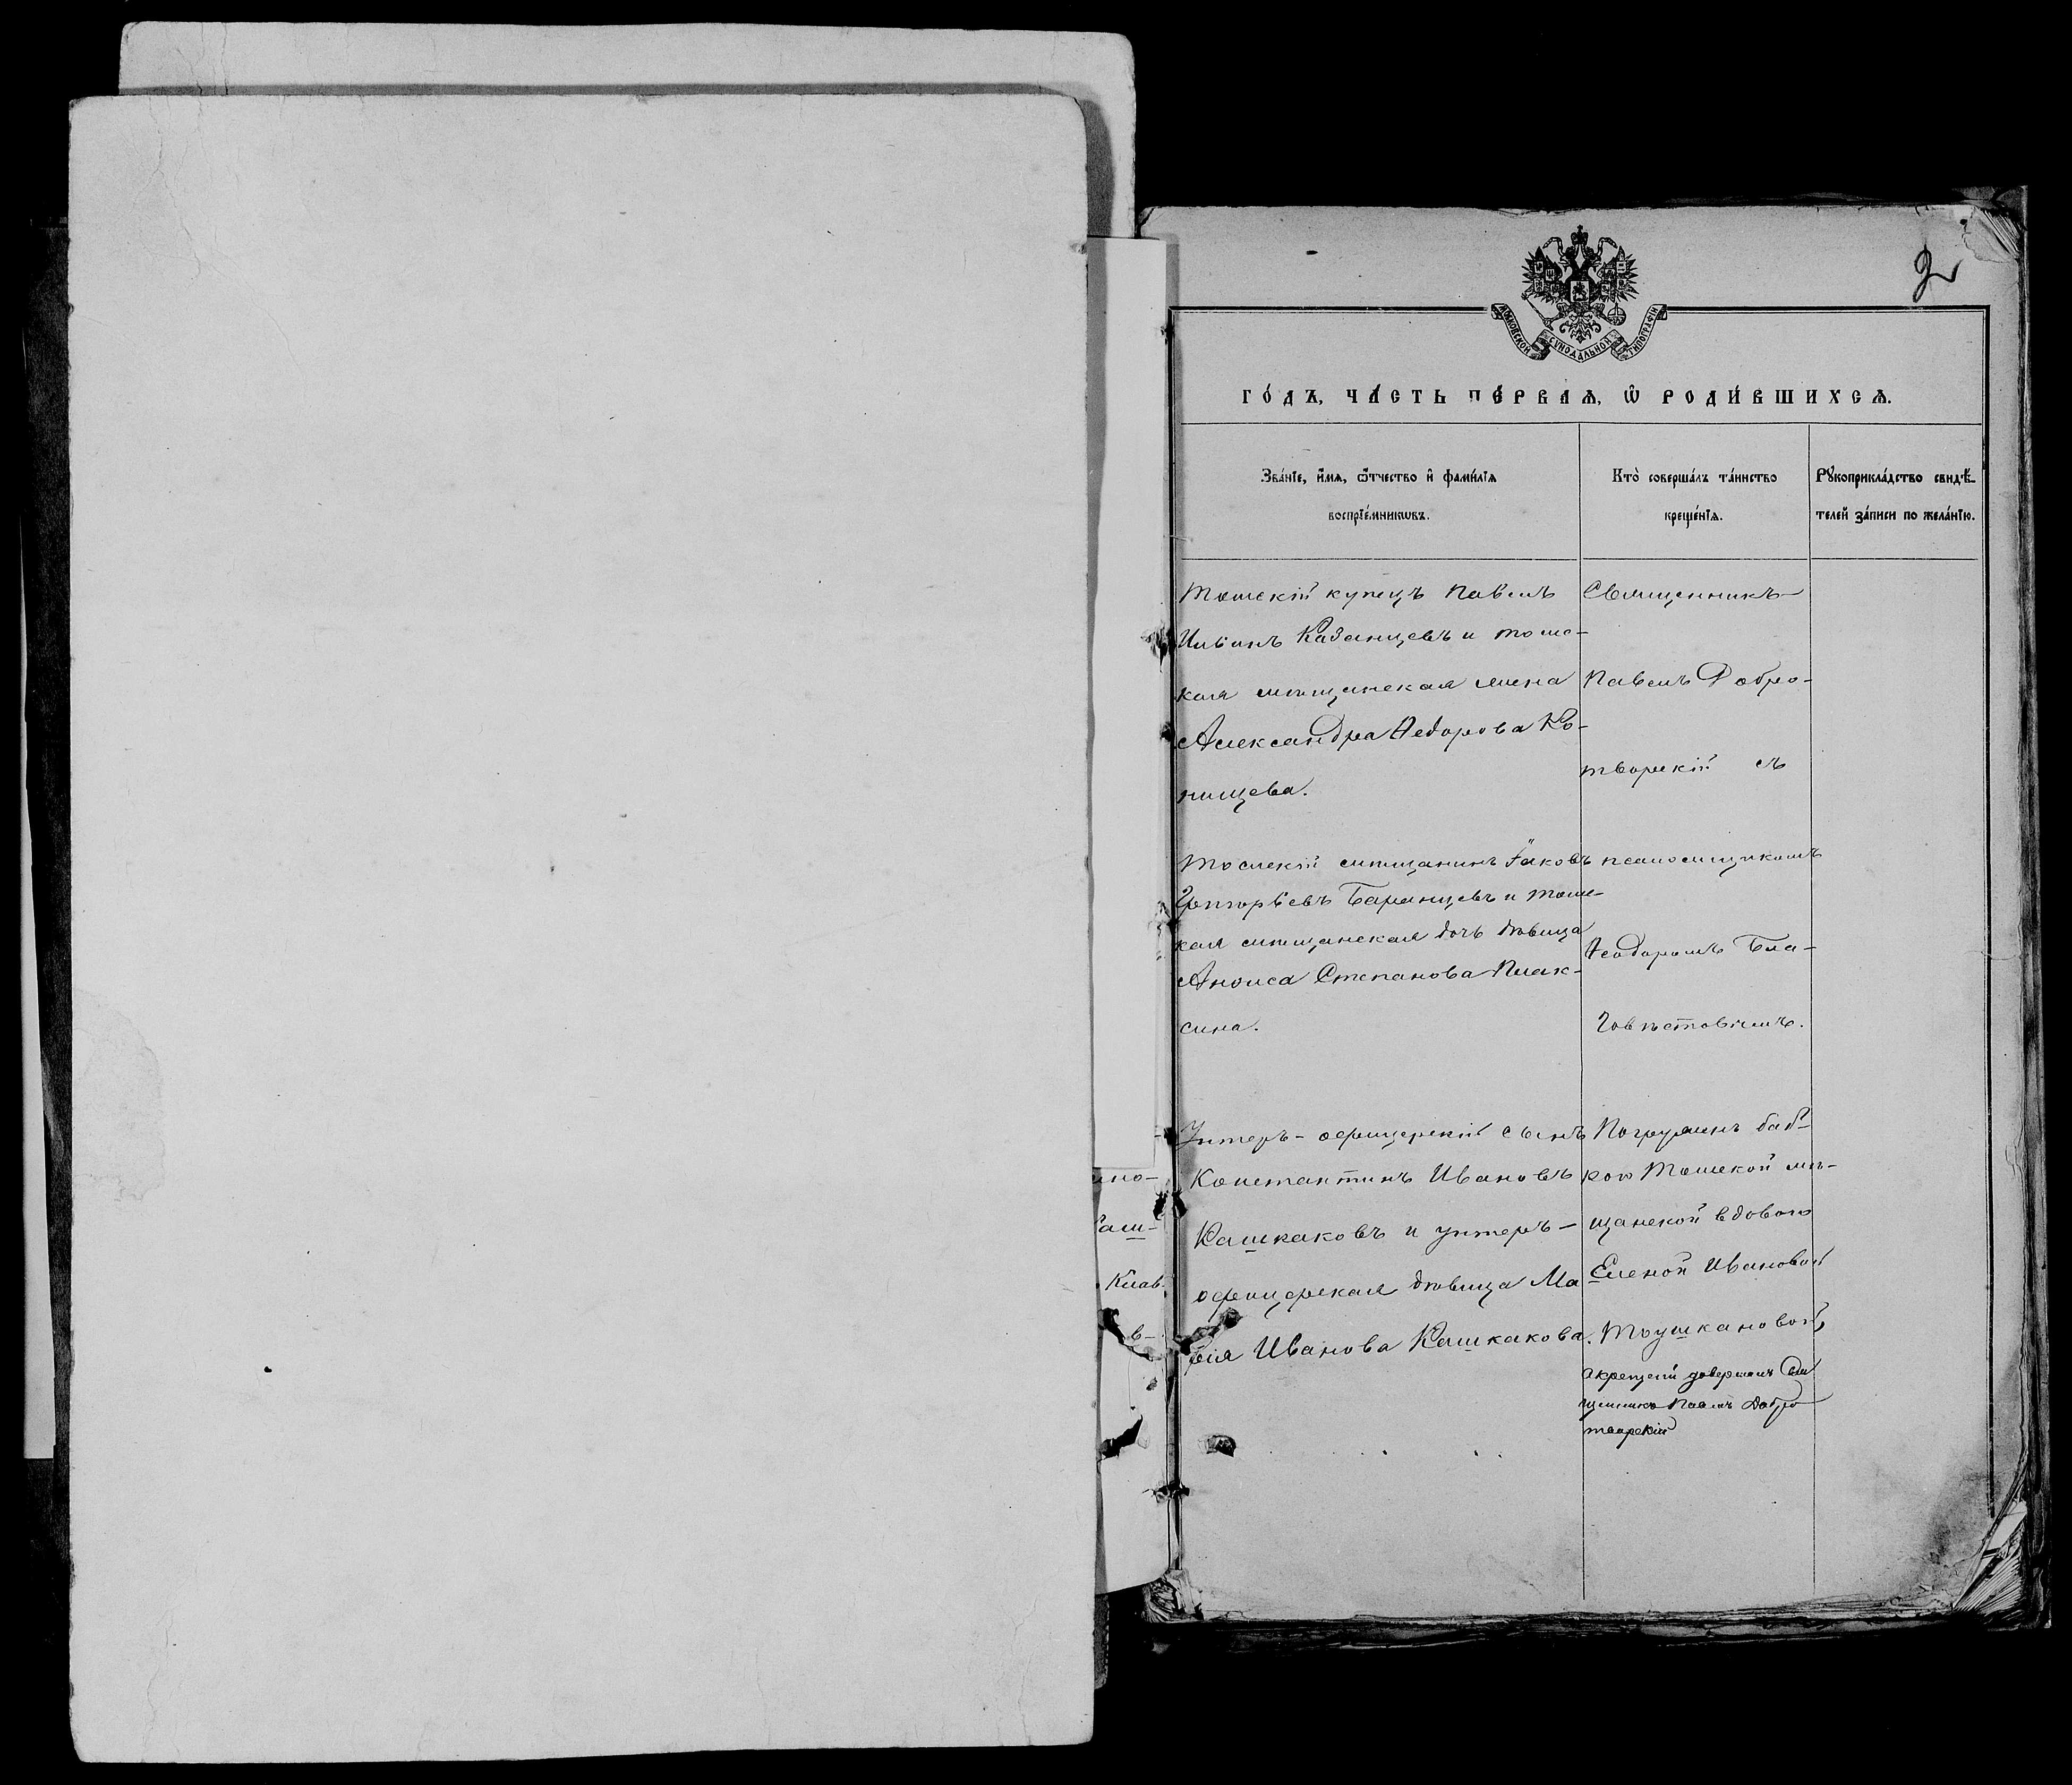 2
МОСКОВСКОЙ СѴНОДАЛЬНОЙ ТИПОГРАФІИ
ГО́ДЪ, ЧА́СТЬ ПЕ́РВАѦ, Ѽ РОДИ́ВШИХСѦ.
Зва́нїе, и҆́мѧ, ѻ҆́тчество и҆ фами́лїѧ
воспрїе́мникѡвъ.
Кто̀ соверша́лъ та́инство
креще́нїѧ.
Рꙋкоприкла́дство свидѣ́-
телей за́писи по жела́нїю.
Томскій купецъ Павелъ
Ильинъ Казанцевъ и томс-
кая мѣщанская жена
Александра Ѳедорова Ко-
нищева.
Священникъ
Павелъ Добро-
творскій съ
Томскій мѣщанинъ Іаковъ
Григорьевъ Баранцевъ и томс-
кая мѣщанская дочь дѣвица
Анѳиса Степанова Плак-
сина.
псаломщикомъ
Ѳеодоромъ Бла-
говѣстовымъ.
Унтеръ-офицерскій сынъ
Константинъ Ивановъ
Кашкаковъ и унтеръ-
офицерская дѣвица Ма
рія Иванова Кашкакова.
Погружинъ баб-
кою Томской мѣ-
щанской вдовою
Еленой Ивановой
Тоушкановой,
а крещеніе довершилъ Свя
щенникъ Павелъ Добро
творскій
ино-
Каш-
Клав-
в-